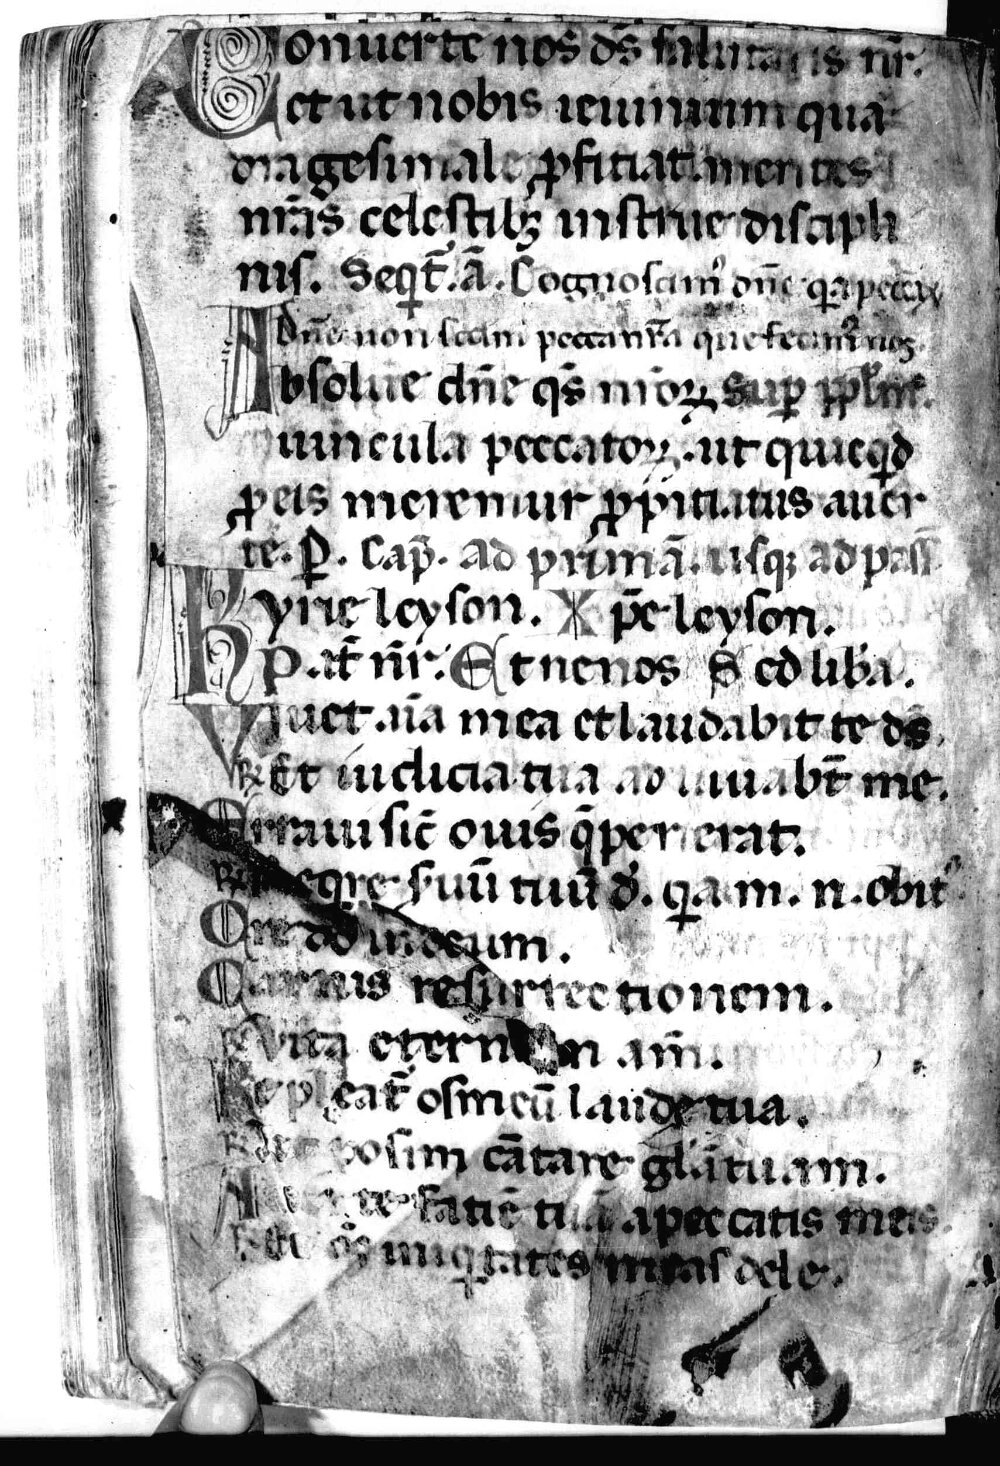 Conuerte nos ds̄ salutaris nr̄.
et ut nobis ieiunium qua
dragesimale ꝓficiat. mentes
nr̄as celestibꝫ instrue discipli
nis. Seqt̄. ā. Cognoscim᷒ dn̄e qꝛ peccaꝰ
dn̄e non peccata nr̄a que fecim᷒ nos
Absolue dn̄e qs̄ nr̄oꝝ Suꝑ
uincula peccatoꝝ. ut quicqd̄
ꝓ eis meremur ꝓpitiatus auer
te. ꝑ. Cap̄. Ad primā. usqꝫ ad pass̄
Kyrie leyson. Xp̄e leyson.
p. at̄ nr̄. Et ne nos S ed liba.
Viuet. aīa mea et laudabit te ds̄.
℟ Et iudicia tua adiuuabt̄ me.
Erraui sic̄ ouis q̄ perierat.
℟ reqre suū tuū d. qꝛ. a. m. n. obit᷒
Cre do in deum.
Carnis resurrectionem.
℟ Vitā eternam am̄.
Repleat̄ os meū laude tua.
℟ posim cātare glā tuam.
Auerte faciē tuā a peccatis meis.
℟ Et ōs iniqtates meas dele.